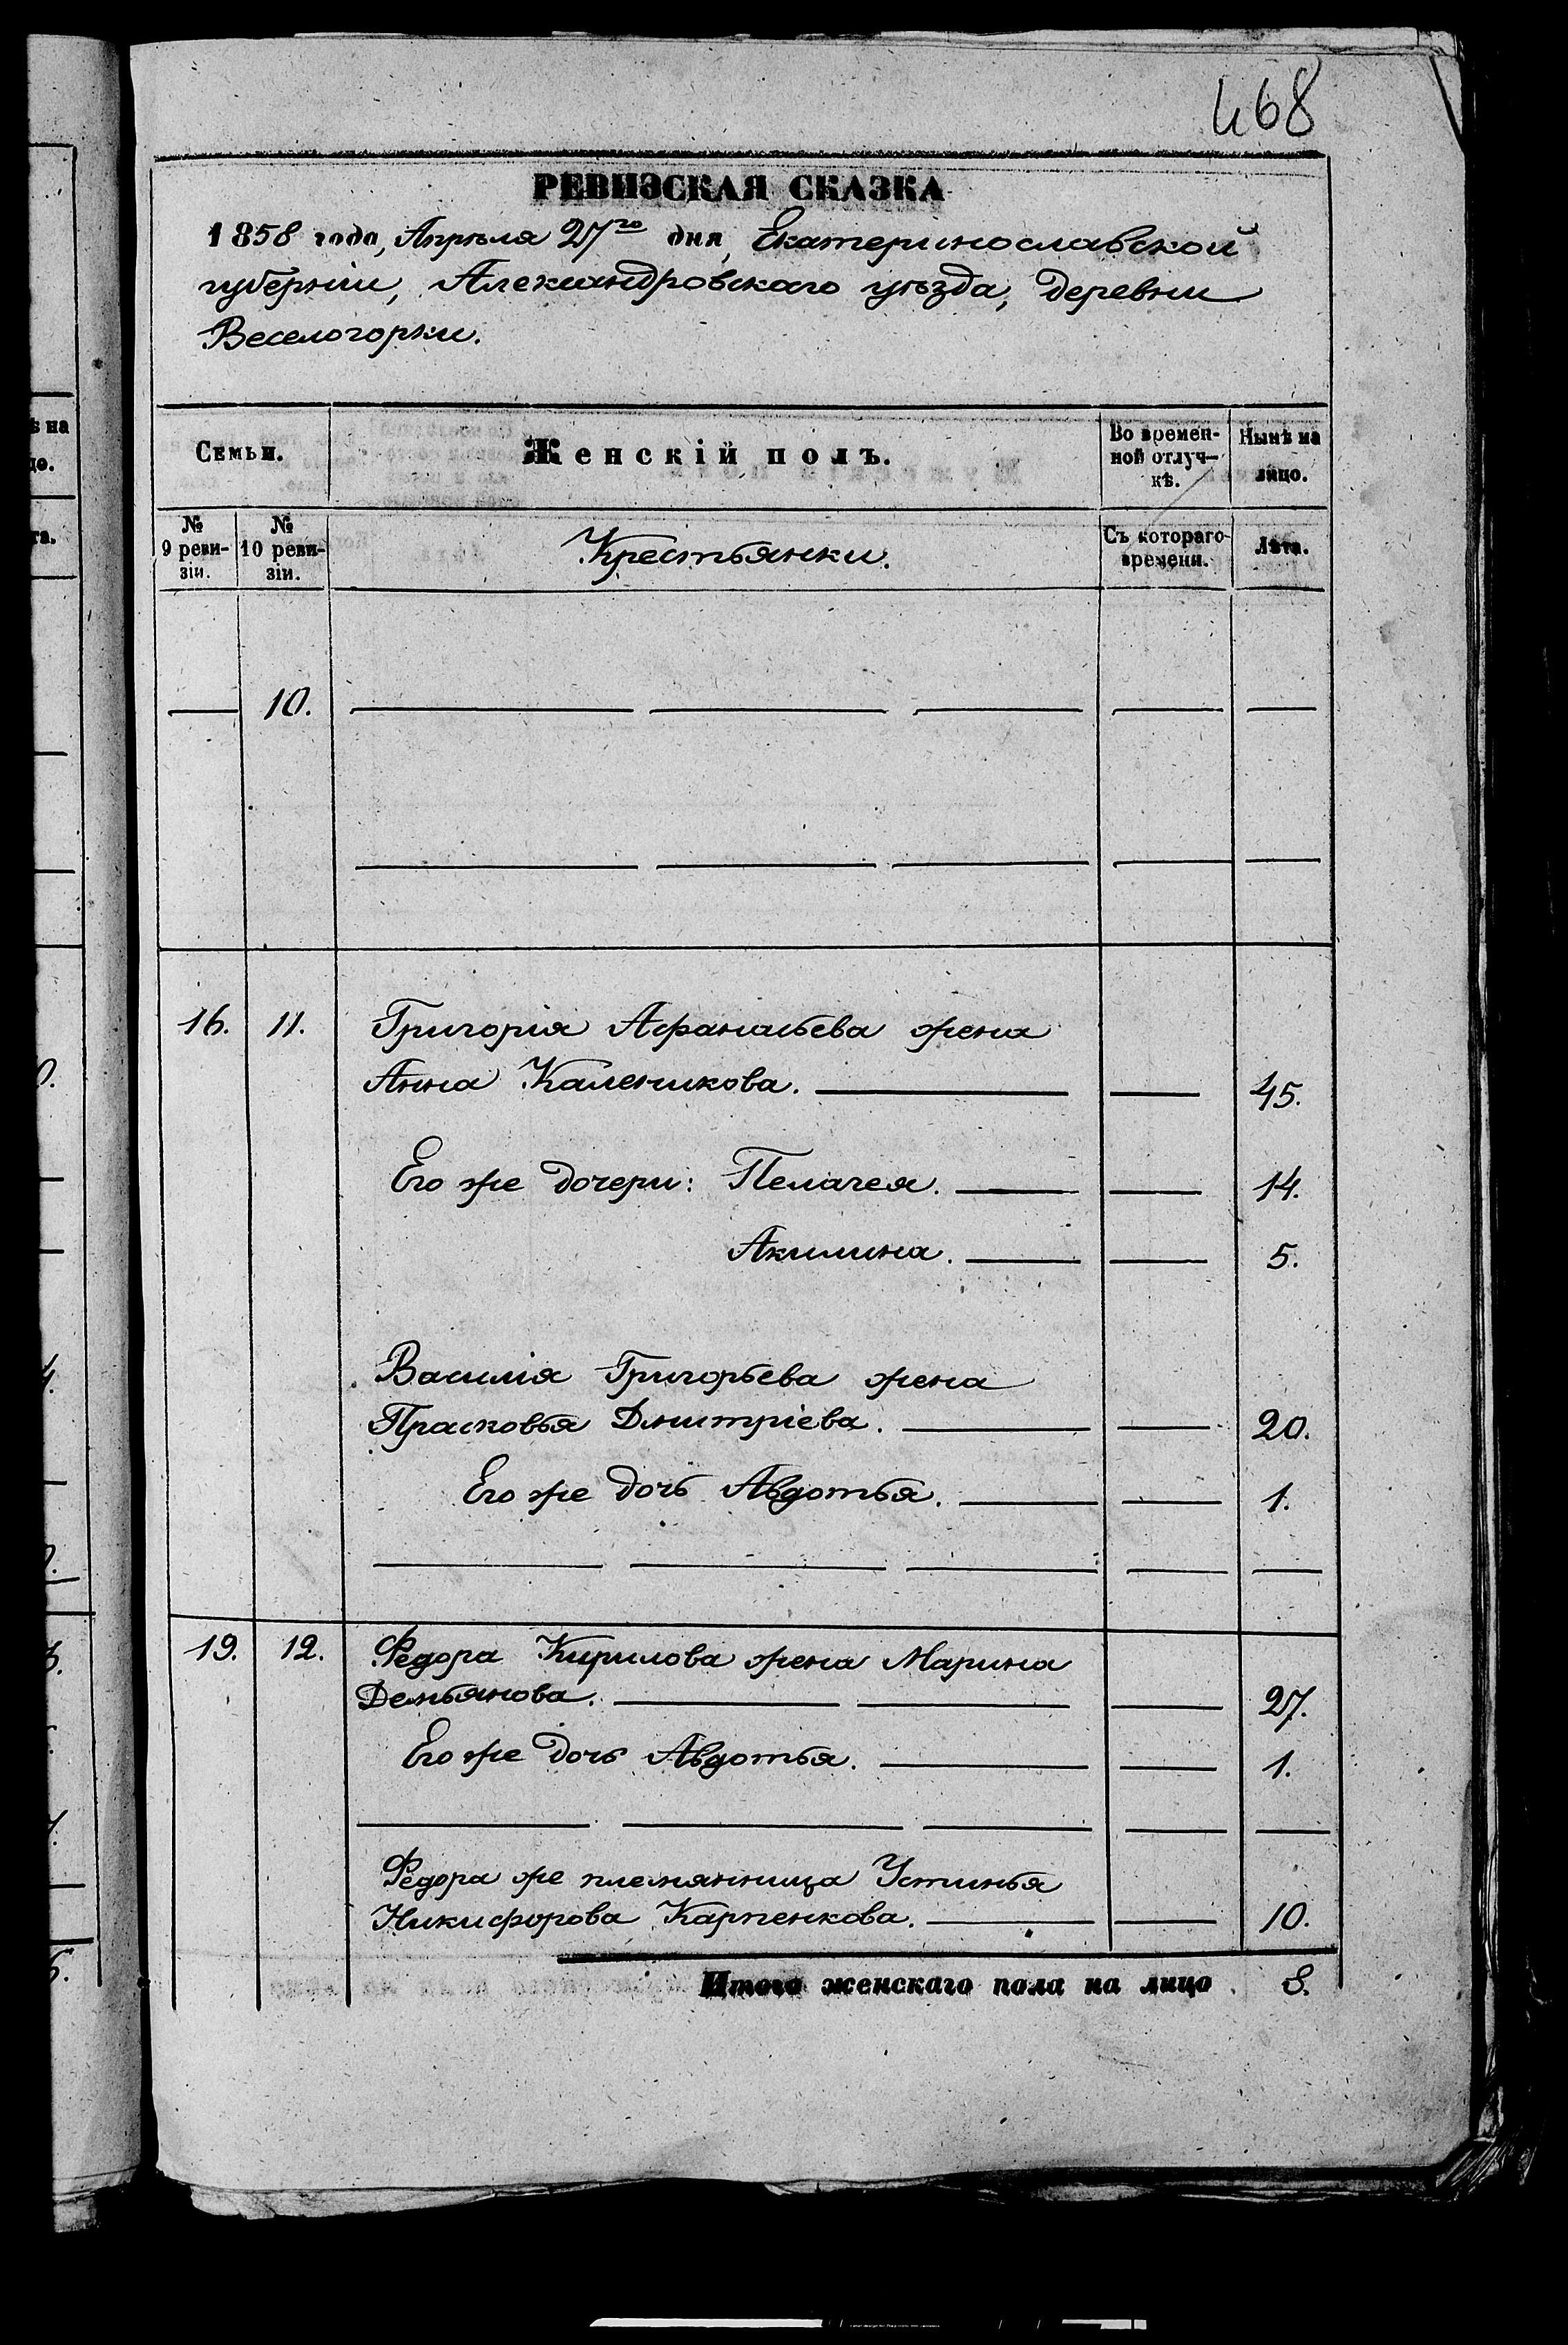 468
РЕВИЗСКАЯ СКАЗКА
1858 года, Апрѣля 27го дня, Екатеринославской
губерніи, Александровскаго уѣзда, деревни
Веселогорки.
Семьи. Женскій полъ. Во времен-ной отлуч-кѣ. Нынѣ на лицо.
№ 9 реви-зіи. № 10 реви-зіи. Крестьянки. Съ котораго времени. Лѣта.
10.
16. 11. Григорія Афанасьева жена
Анна Каленикова. 45.
Его же дочери: Пелагея. 14.
Акилина. 5.
Василія Григорьева жена
Прасковья Дмитріева. 20.
Его же дочь Авдотья. 1.
19. 12. Федора Кирилова жена Марина
Демьянова. 27.
Его же дочь Авдотья. 1.
Федора же племянница Устинья
Никифорова Карпенкова. 10.
Итого женскаго пола на лицо 8.